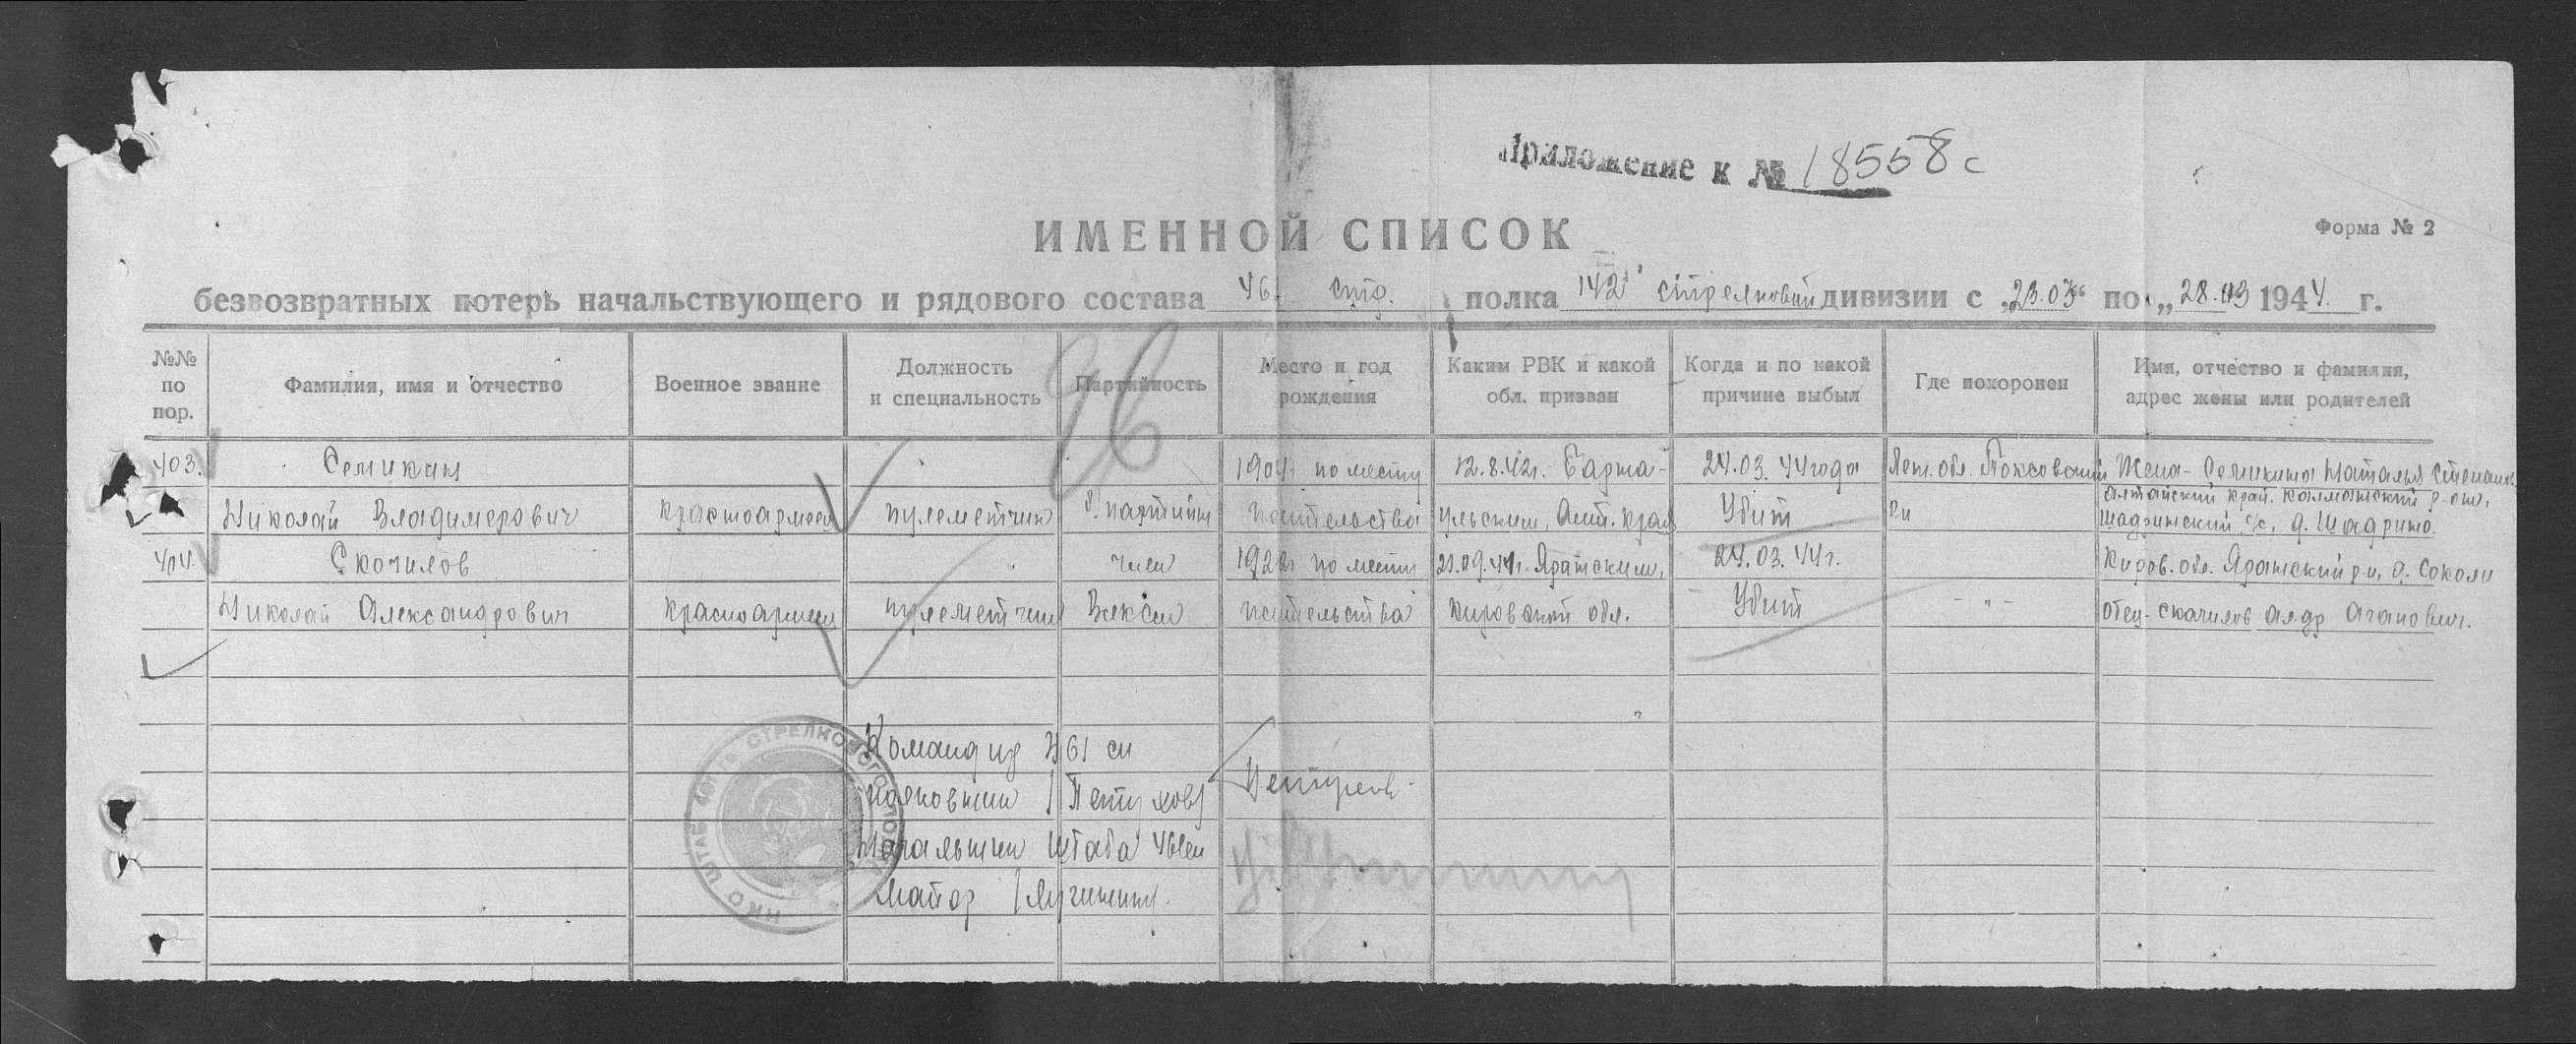 Приложение к № 18558с
ИМЕННОЙ СПИСОК
Форма № 2
безвозвратных потерь начальствующего и рядового состава 461 стр. полка 142 стрелковой дивизии с „23.03“ по „28.03 1944 г.
№№ по пор.
Фамилия, имя и отчество
Военное звание
Должность и специальность
Партийность
Место и год рождения
Каким РВК и какой обл. призван
Когда и по какой причине выбыл
Где похоронен
Имя, отчество и фамилия, адрес жены или родителей
96
403. Семикин 1904г по месту 12.8.42г. Барна- 24.03.44 года Лен. обл. Токсовский Жена - Семикина Наталья Степан.
Николай Владимирович красноармеец пулеметчик б/партийн жительства ульским, Алт. края Убит р-н Алтайский край. Калманский р-он,
Шадринский с/с, д. Шадрино.
404. Скочилов член 1922г по месту 21.09.41г. Яранским, 24.03.44г. Киров. обл. Яранский р-н, д. Соколи
Николай Александрович красноармеец пулеметчик жительства Кировской обл. Убит - " - отец - Скочилов Алдр Агапович.
Командир 461 сп
полковник /Петухов/
Начальник штаба 461сп
Майор
НКО ШТАБ 461 ГО СТРЕЛКОВОГО ПОЛКА